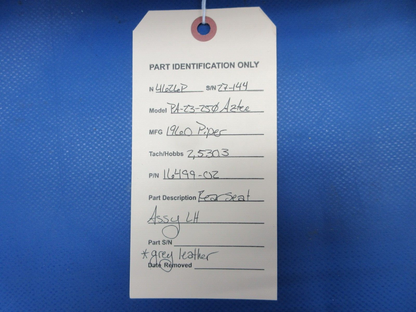 PART IDENTIFICATION ONLY
N 4626P S/N 27-144
Model PA-23-250 Aztec
MFG 1960 Piper
Tach/Hobbs 2,530.3
P/N 16499-02
Part Description Rear seat
Assy LH
Part S/N
* grey leather
Date Removed